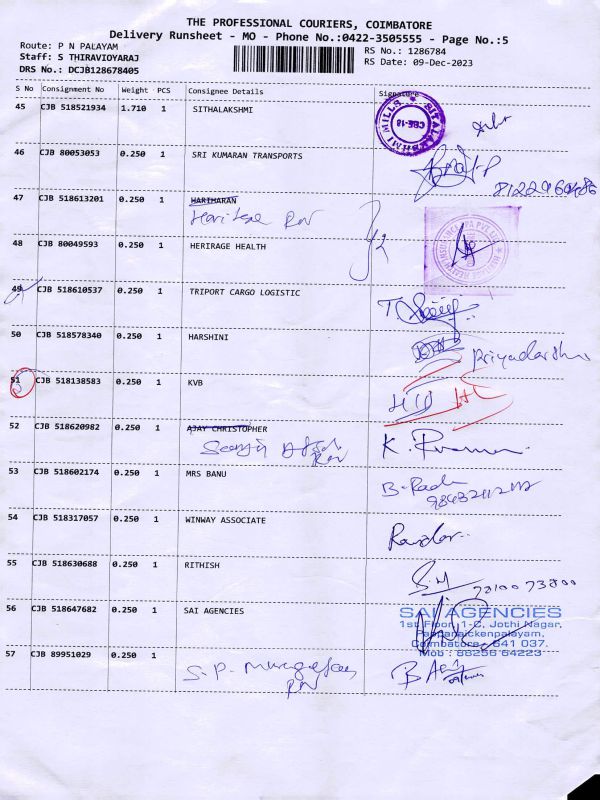 THE PROFESSIONAL COURIERS, COIMBATORE
Delivery Runsheet - MO - Phone No.:0422-3505555 - Page No.:5
Route: P N PALAYAM
RS No.: 1286784
Staff: S THIRAVIOYARAJ
RS Date: 09-Dec-2023
DRS No.: DCJB128678405
S No Consignment No Weight PCS Consignee Details Signature
45 CJB 518521934 1.710 1 SITHALAKSHMI
SITALAKSHMI MILLS
CBE-18
46 CJB 80053053 0.250 1 SRI KUMARAN TRANSPORTS
47 CJB 518613201 0.250 1 HARIHARAN
48 CJB 80049593 0.250 1 HERIRAGE HEALTH
49 CJB 518610537 0.250 1 TRIPORT CARGO LOGISTIC
50 CJB 518578340 0.250 1 HARSHINI
51 CJB 518138583 0.250 1 KVB
52 CJB 518620982 0.250 1 AJAY CHRISTOPHER
K.
53 CJB 518602174 0.250 1 MRS BANU
54 CJB 518317057 0.250 1 WINWAY ASSOCIATE
55 CJB 518630688 0.250 1 RITHISH
56 CJB 518647682 0.250 1 SAI AGENCIES
SAI AGENCIES
1st Floor, 1-C, Jothi Nagar,
Pappanaickenpalayam,
Coimbatore - 641 037.
Mob : 98256 64223
57 CJB 89951029 0.250 1
S.P.